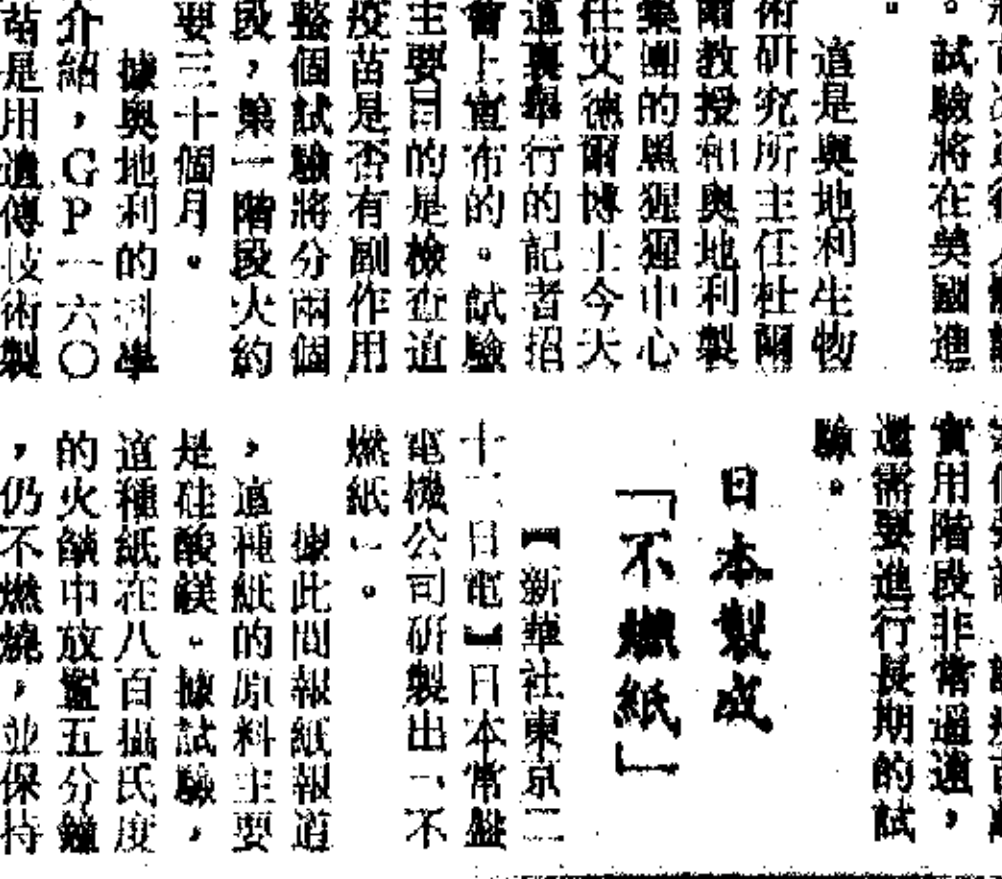 。試驗將在美國進
。
這是奧地利生物
術研究所主任杜爾
爾教授和奧地利製
藥團的黑猩猩中心
任艾德爾博士今天
這裏舉行的記者招
會上宣布的。試驗
主要目的是檢查這
疫苗是否有副作用
整個試驗將分兩個
段,第一階段大約
要三十個月。
據奧地利的科學
介紹,GP一六〇
苗是用遺傳技術製
實用階段非常遙遠,
還需要進行長期的試
驗。
日本製成
「不燃紙」
【新華社東京三
十一日電】日本常盤
電機公司研製出「不
燃紙」。
據此間報紙報道
,這種紙的原料主要
是硅酸鎂。據試驗,
這種紙在八百攝氏度
的火燄中放置五分鐘
,仍不燃燒,並保持